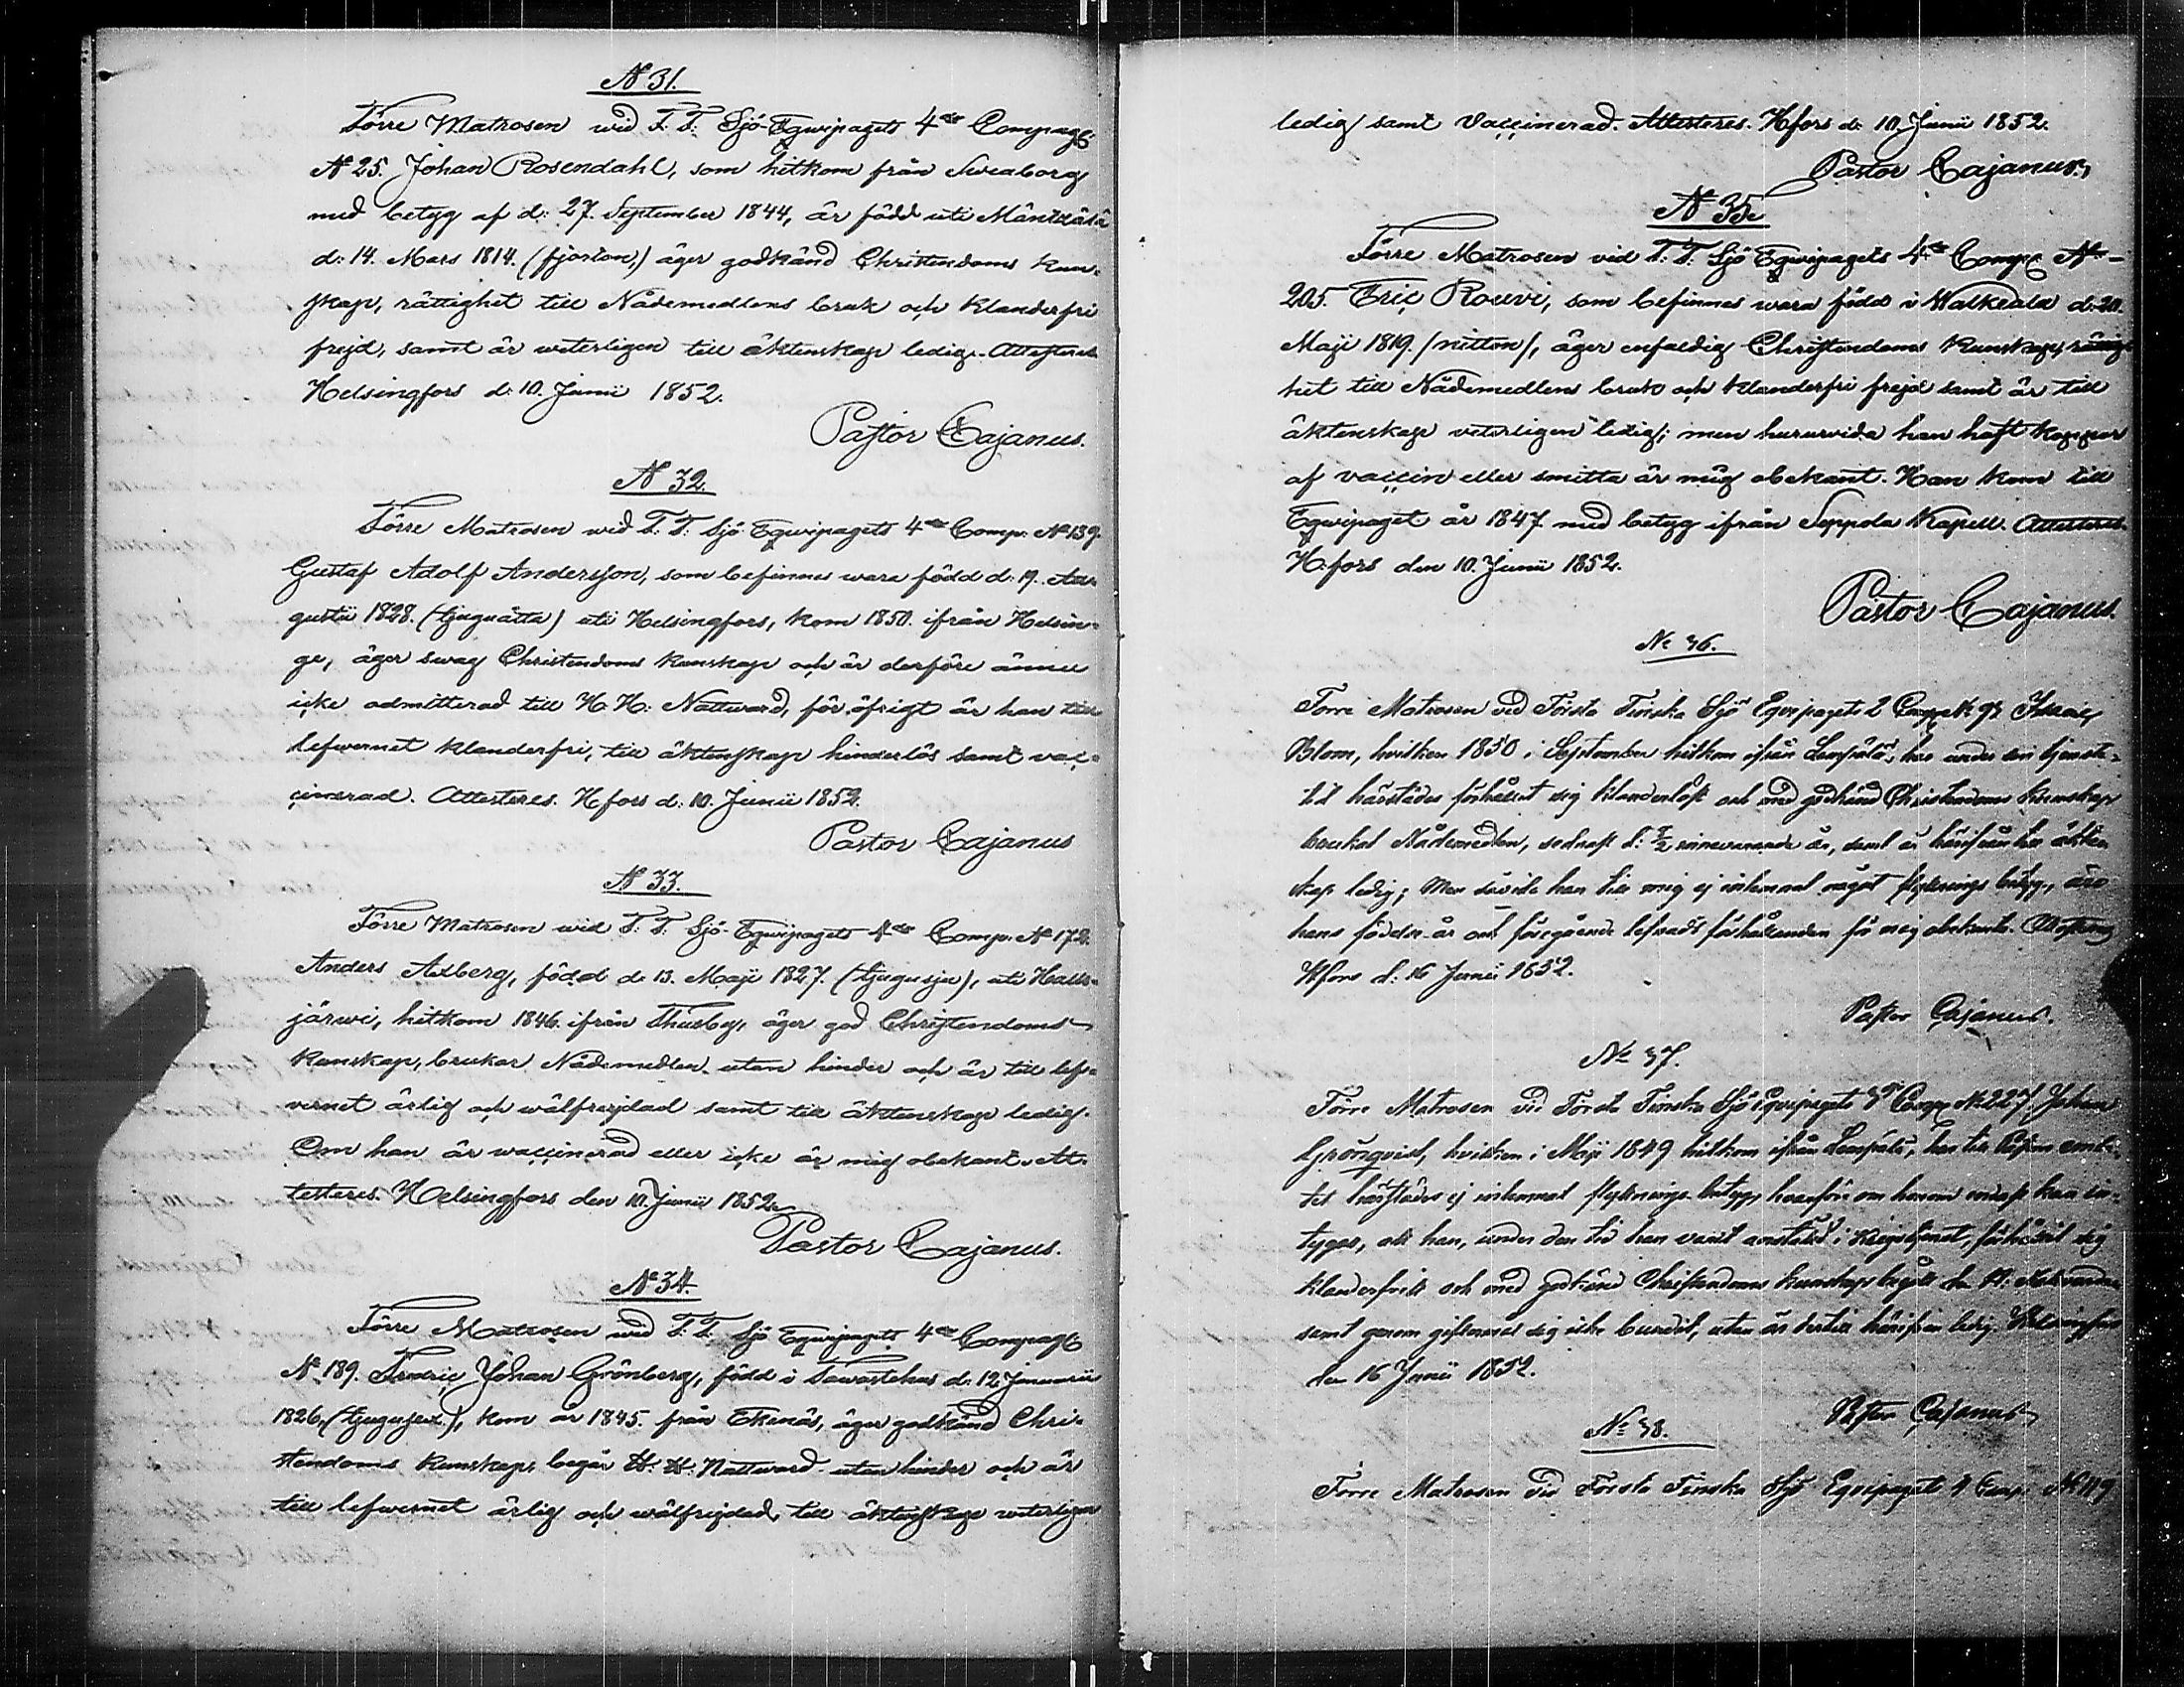 N 31.
Förre Matrosen wid F. F: Sjö-Eqwipagets 4de Compagc:
N 25. Johan Rosendahl, som hitkom från Sweaborg
med betyg af d: 27. September 1844, är född uti Mäntzälä
d: 14. Mars 1814. (fjorton,) äger godkänd Christendoms kun-
skap, rättighet till Nådemedlens bruk och klanderfri
frejd, samt är weterligen till äktenskap ledig. Attesteres.
Helsingfors d: 10. Junii 1852.
Pastor Cajanus.
N 32.
Förre Matrosen wid F. F: Sjö Eqwipagets 4de Comp: N 139.
Gustaf Adolf Andersson, som befinnes wara född d: 19. Au-
gustii 1828. (tjuguåtta) uti Helsingfors, kom 1850. ifrån Helsin-
ge, äger swag Christendoms kunskap och är derföre ännu
icke admitterad till H. H: Nattward, för öfrigt är han till
lefwernet klanderfri, till äktenskap hinderlös samt vac-
cinerad. Attesteres. Hfors d: 10. Junii 1852.
Pastor Cajanus
N 33.
Förre Matrosen wid F. F: Sjö-Eqwipagets 4de Comp: N 172.
Anders Axberg, född d: 13. Maji 1827. (tjugusju), uti Haus-
järwi, hitkom 1846. ifrån Thusby, äger god Christendoms
kunskap, brukar Nådemedlen utan hinder och är till lef-
vernet ärlig och wälfrejdad samt till äktenskap ledig.
Om han är waccinerad eller icke är mig obekant. At-
testeres. Helsingfors den 10. Junii 1852.
Pastor Cajanus.
N 34.
Förre Matrosen wid F. F. Sjö Eqwipagets 4de Compagc
N 189. Fredric Johan Grönberg, född i Tawastehus d: 12 Januarii
1826, (tjugusex), kom år 1845. från Ekenäs, äger godkänd Chri-
stendoms kunskap, begår H. H: Nattward utan hinder och är
till lefwernet ärlig och wälfrejdad, till äktenskap weterligen
ledig samt Vaccinerad. Attesteres. Hfors d: 10 Junii 1852.
Pastor Cajanus.
N 35.
Förre Matrosen vid F. F. Sjö Eqwipagets 4de Comp: N
205. Eric Rouvi, som befinnes wara född i Walkeala d: 20.
Maji 1819. /nitton/, äger enfaldig Christendoms kunskap, rättig-
het till Nådemedlens bruk och klanderfri frejd samt är till
äktenskap veterligen ledig; men huruvida han haft koppor
af vaccin eller smitta är mig obekant. Han kom till
Eqwipaget år 1847 med betyg ifrån Seppola Kapell. Attesteres.
H:fors den 10. Junii 1852.
Pastor Cajanus.
No 36.
Förre Matrosen vid Första Finska Sjö Eqvipagets 2 Comp: N 98
Blom, hvilken 1850 i September hitkom ifrån Lempälä, har under sin tjenste-
tid härstädes förhållit sig klanderlöst och med godkänd Christendoms kunskap
brukat Nådemedlen, sednast d: innevarande år, samt är härifrån till äkten-
skap ledig; Men såvida han till mig ej inlemnat något flyttnings betyg, äro
hans födelse-år och föregående lefnads förhållanden för mig obekanta.
Hfors d: 16 Junii 1852.
Pastor Cajanus.
No 37.
Förre Matrosen vid Första Finska Sjö Eqvipagets Comp: N 227 Johan
Grönqvist, hvilken i Maji 1849 hitkom ifrån Lempälä, har till Pastors embe-
tet härstädes ej inlemnat flyttnings betyg, hvarföre om honom endast kan in-
tygas, att han, under den tid han varit anställd i krigstjenst, förhållit sig
klanderfritt och med godkänd Christendoms kunskap begått den H. Nattvarden
samt genom giftermål sig icke bundit, utan är dertill härifrån ledig. Helsingfors
den 16 Junii 1852.
Pastor Cajanus
No 38.
Förre Matrosen vid Första Finska Sjö Eqvipagets 4 Comp: N 119